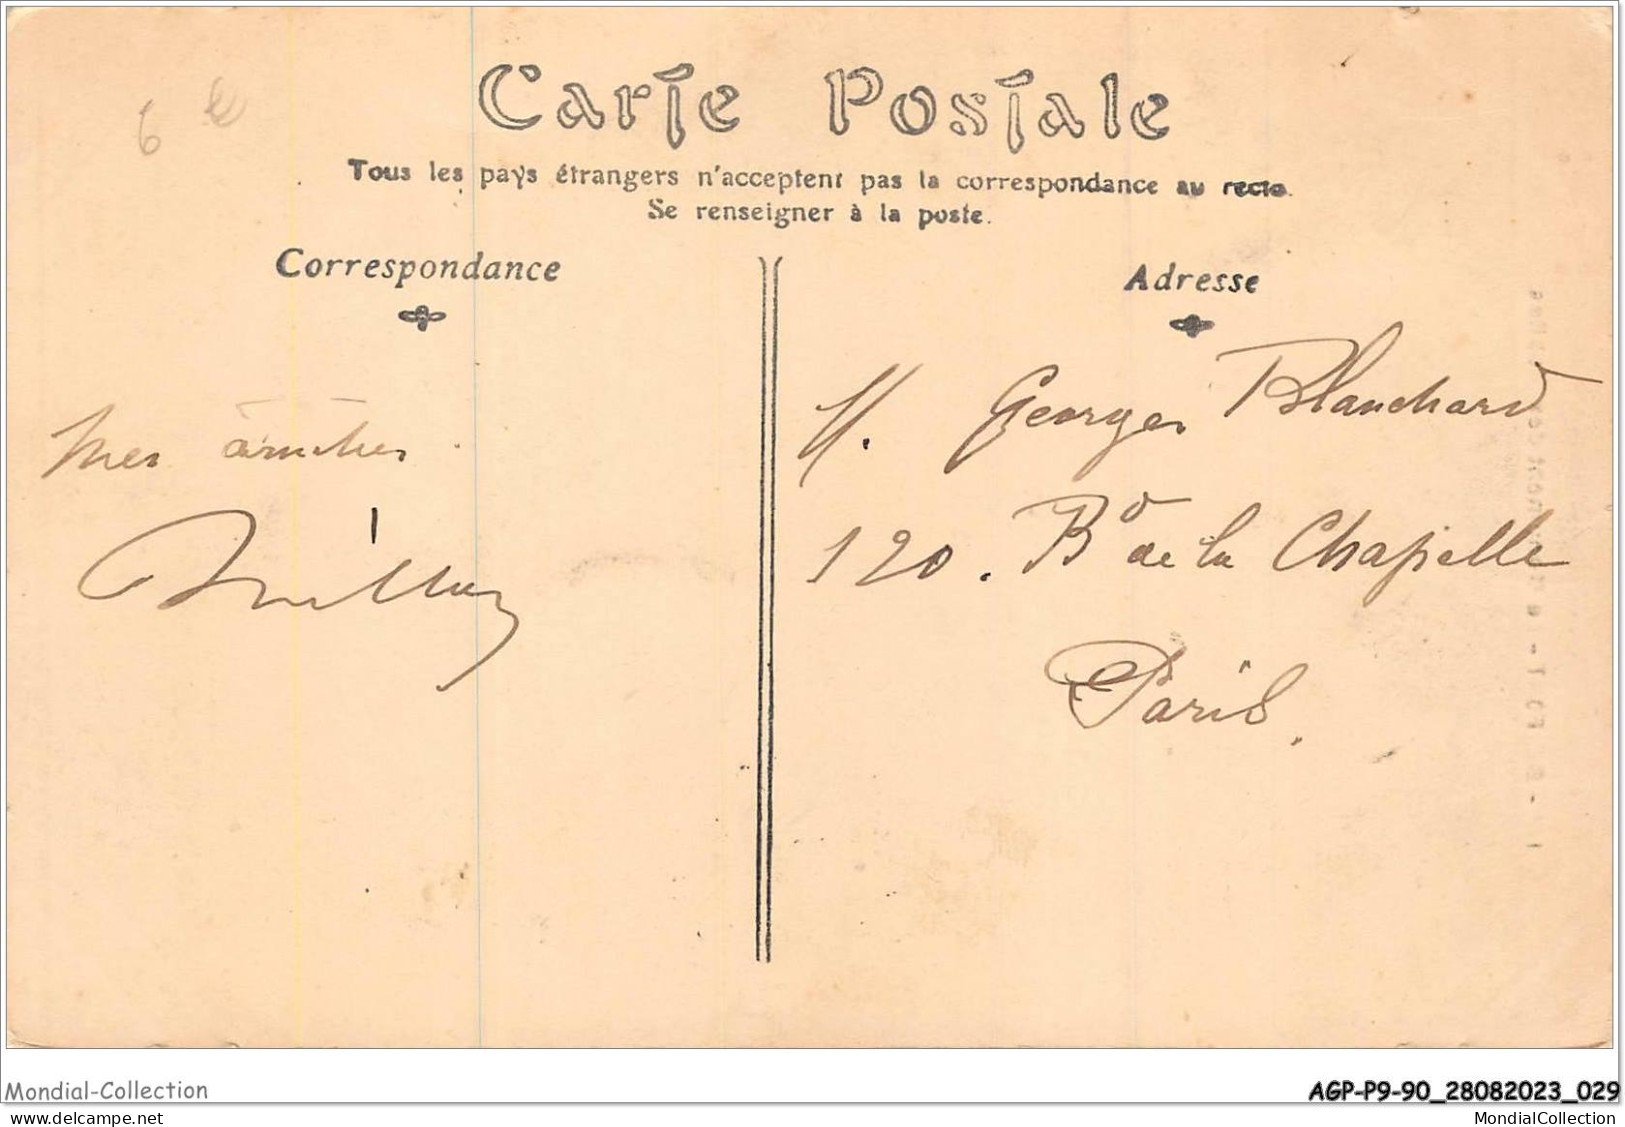 6 €
Carte Postale
Tous les pays étrangers n'acceptent pas la correspondance au recto.
Se renseigner à la poste.
Correspondance
Adresse
Mes amitiés
M. Georges Blanchard
120. Bd de la Chapelle
Paris.
Mondial-Collection
AGP-P9-90_28082023_029
www.delcampe.net
MondialCollection